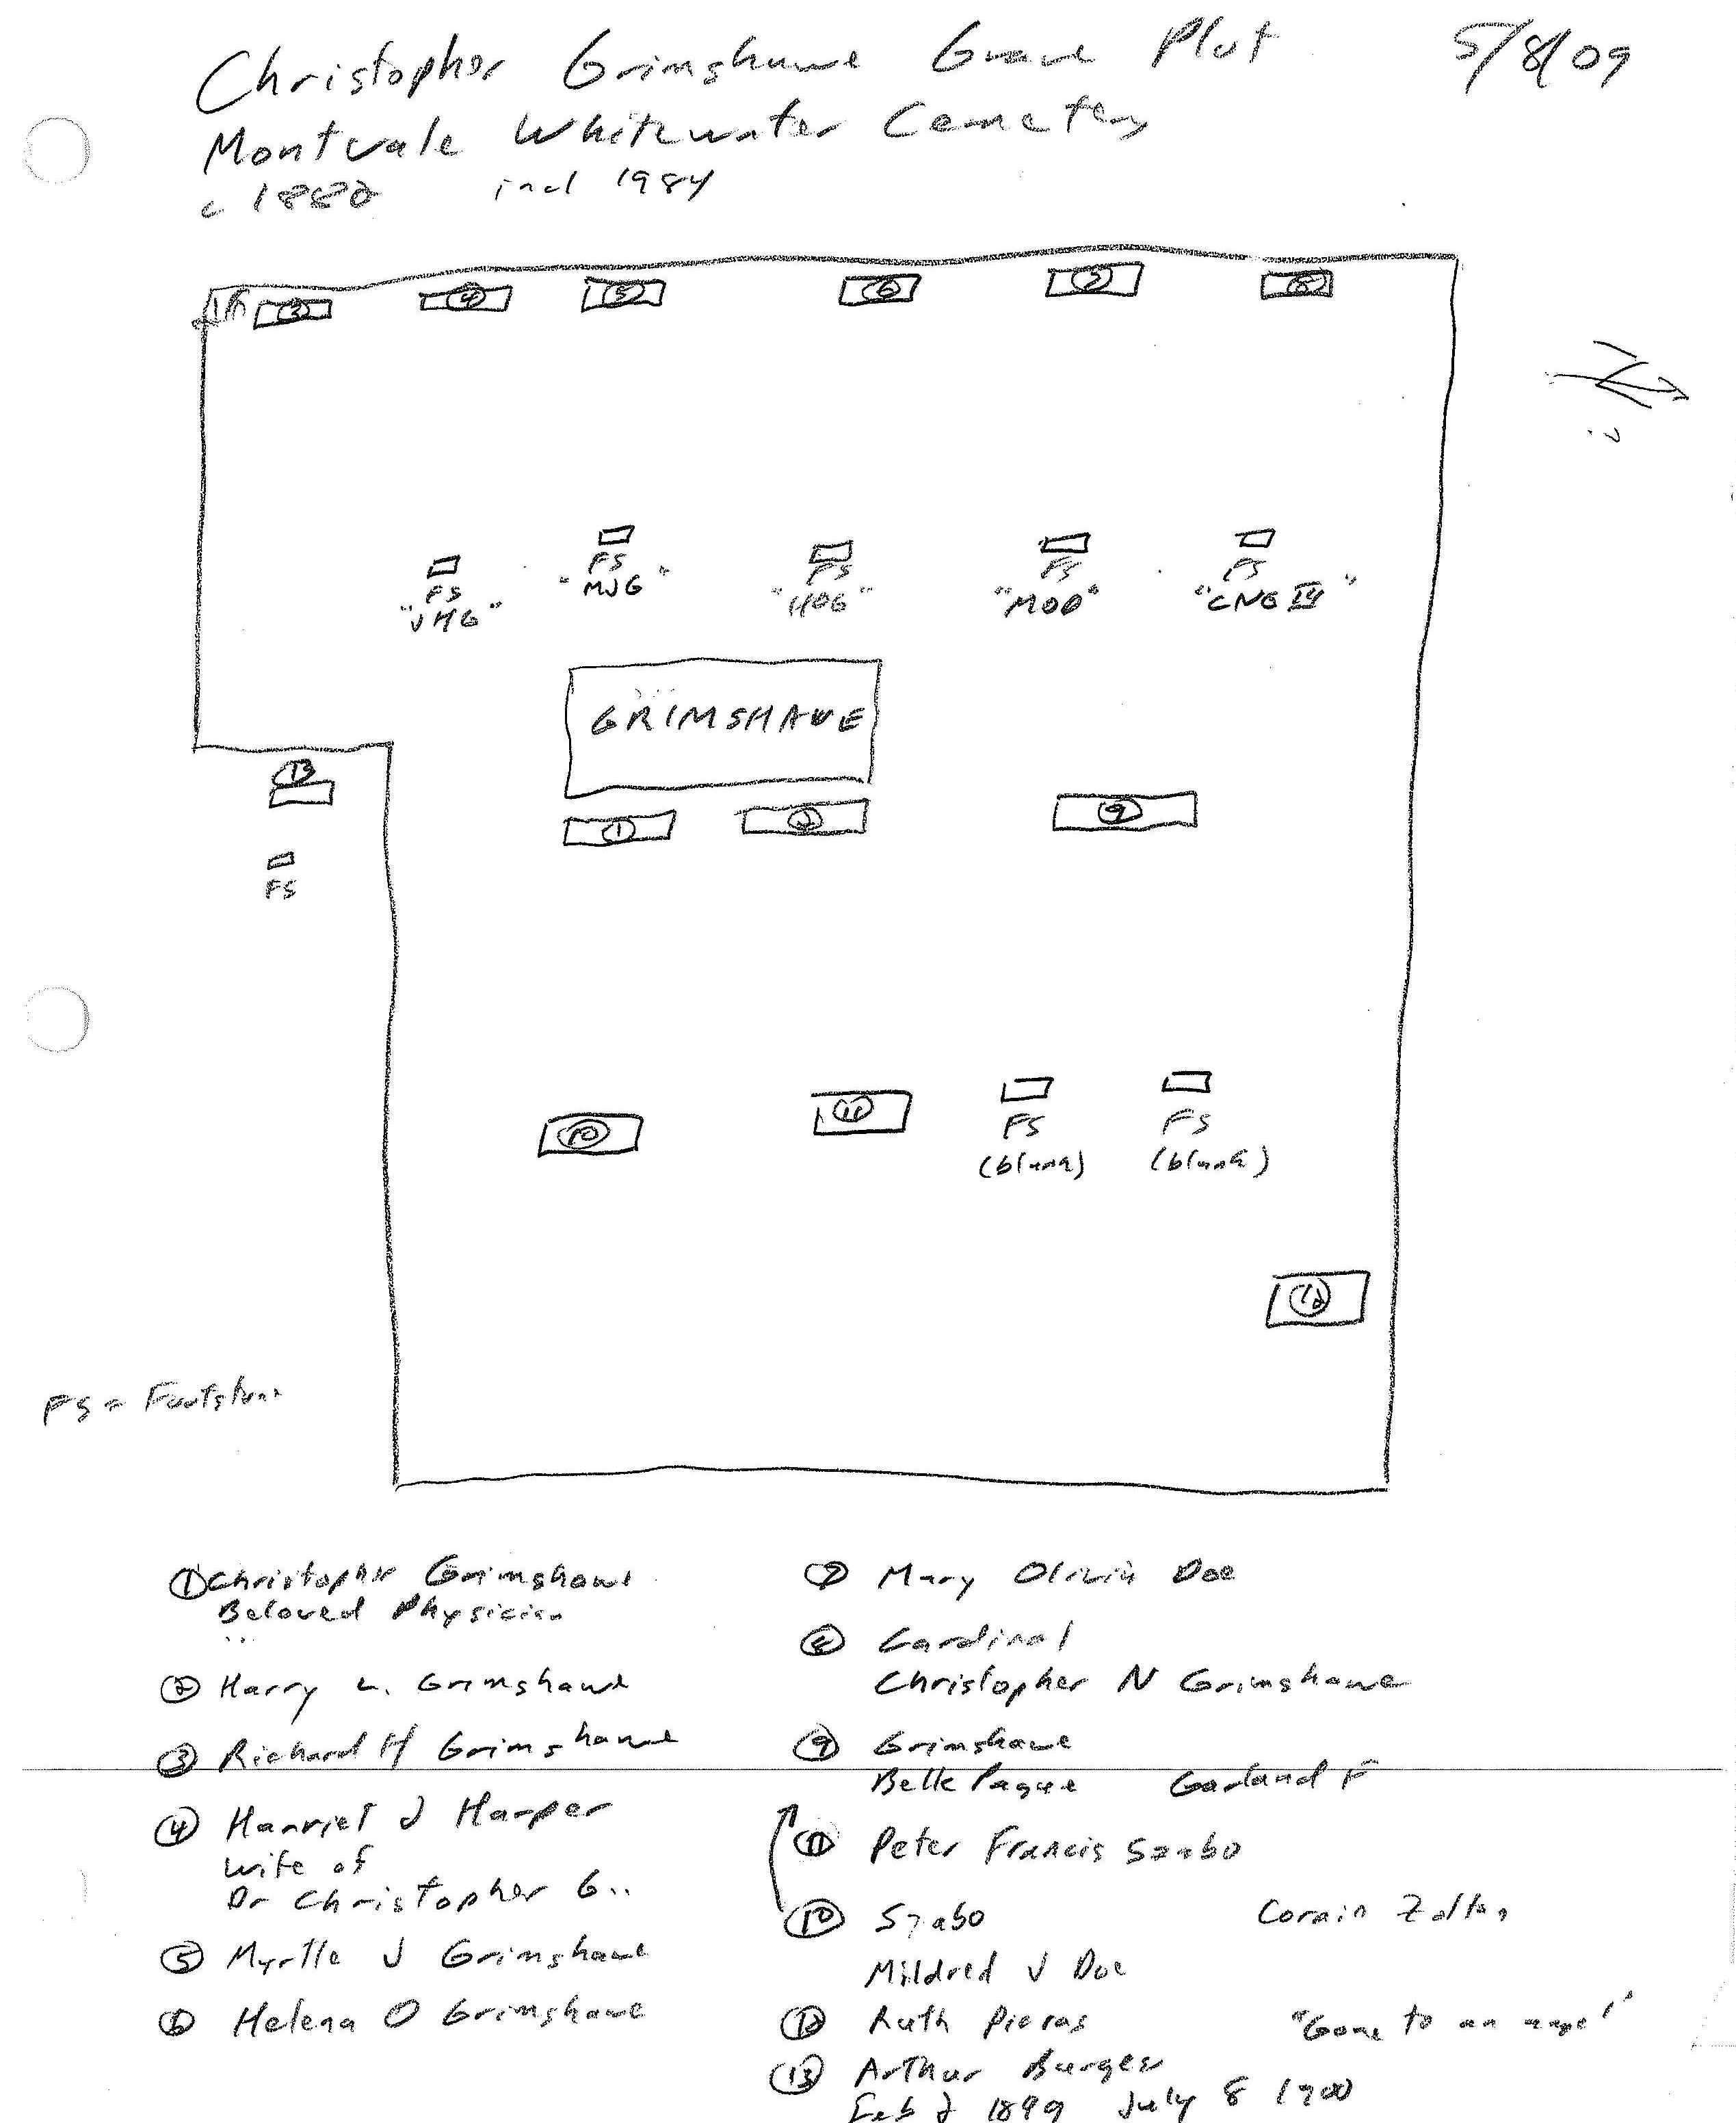 Christopher Grimshawe Grave Plot 5/8/09
Montvale Whitewater Cemetery
c 1880 incl 1984
3 4 5 6 7 8
FS FS FS FS FS
"JHG" "MJG" "HOG" "MOD" "CNG III"
GRIMSHAWE
13
1 2 9
FS
10 11 FS FS
(blank) (blank)
12
FS = Footstone
① Christopher Grimshawe
Beloved Physician
② Harry L. Grimshawe
③ Richard H Grimshawe
④ Harriet J Harper
wife of
Dr Christopher G..
⑤ Myrtle J Grimshawe
⑥ Helena O Grimshawe
⑦ Mary Olivia Doe
⑧ Cardinal
Christopher N Grimshawe
⑨ Grimshawe
Belle Pague Garland F
⑪ Peter Francis Szabo
⑩ Szabo Zoltan
Mildred J Doe
⑫ Ruth Pieras "Gone to an angel"
⑬ Arthur Burges
Feb 2 1899 July 8 1900